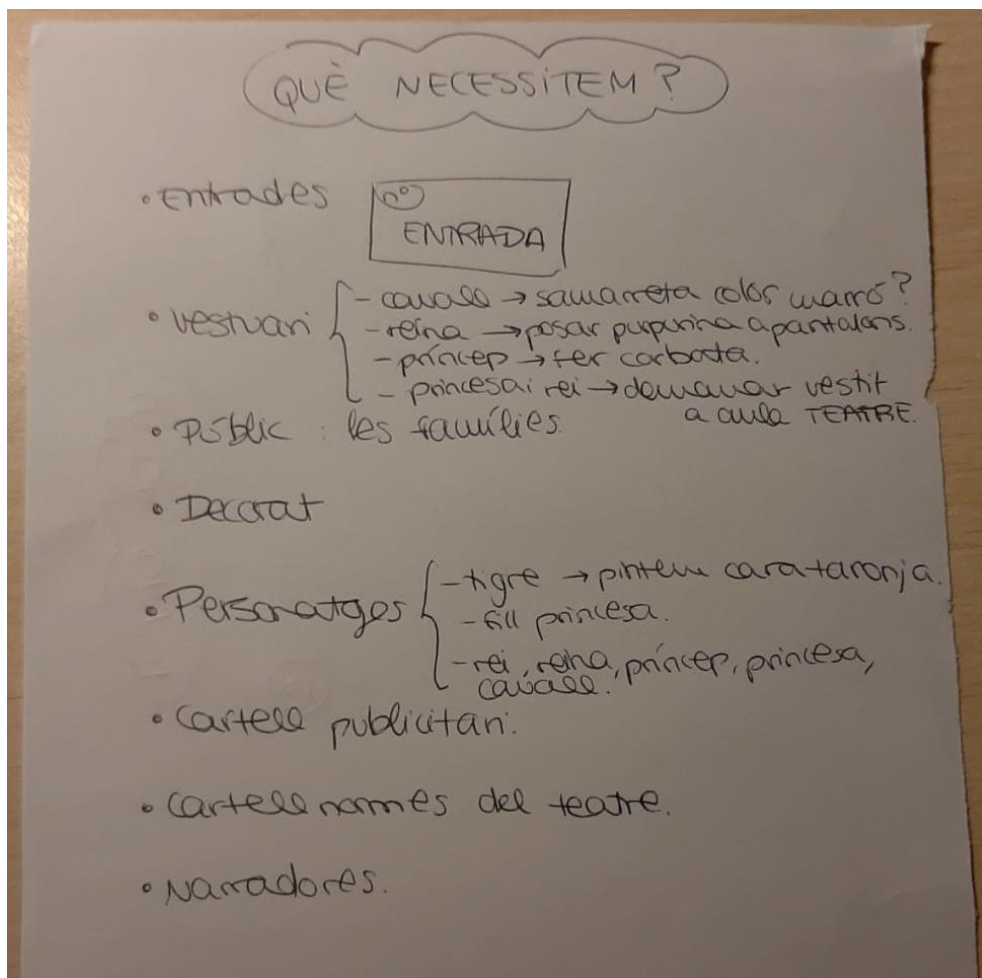 QUÈ NECESSITEM?
• Entrades
ENTRADA
• Vestuari
- cavall → samarreta color marró?
- reina → posar purpurina a pantalons.
- príncep → fer corbata.
- princesa i rei → demanar vestit
a aula TEATRE.
• Públic : les famílies.
• Decorat
• Personatges
- tigre → pintem cara taronja.
- fill princesa.
- rei, reina, príncep, princesa,
cavall.
• Cartell publicitari.
• Cartell normes del teatre.
• Narradores.